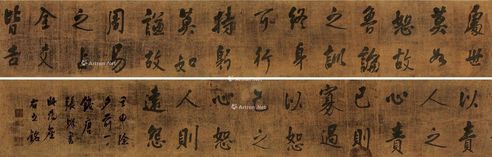 處世
莫如
恕故
魯論
之訓
終身
可行
持躬
莫如
謙故
周易
之占
全爻
皆吉
以責
人之
心責
己則
寡過
以恕
己之
心恕
人則
遠怨
壬申除
夕前一
Artron.Net
Artron.Net